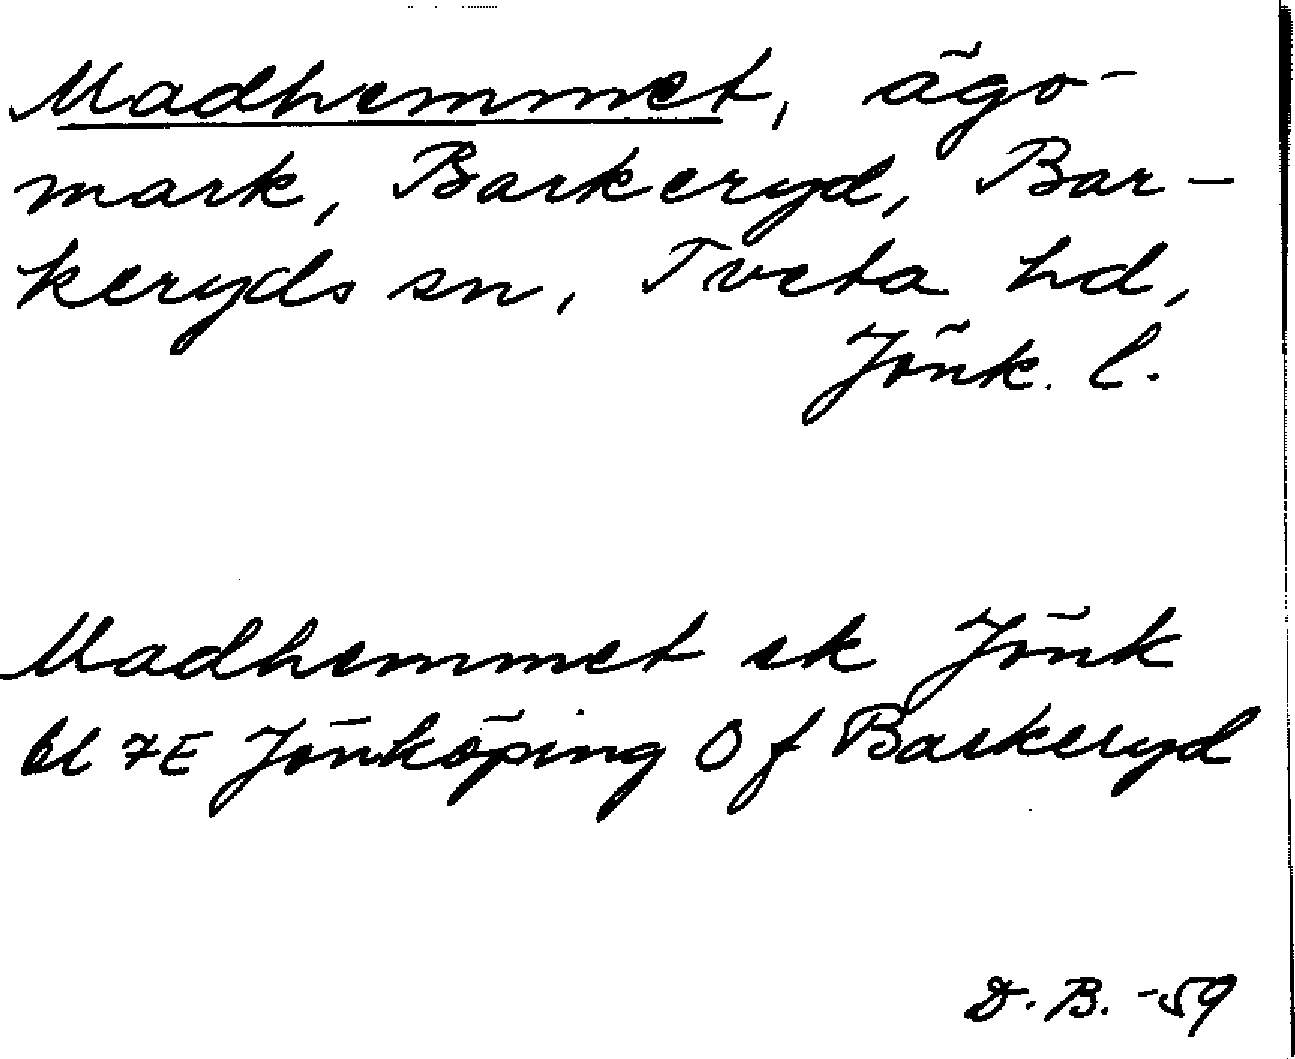 Madhemmet, ägo-
mark, Barkeryd, Bar-
keryds sn, Tveta hd,
Jönk. l.
Madhemmet ek Jönk
bl 7E Jönköping O f Barkeryd
D. B. -59